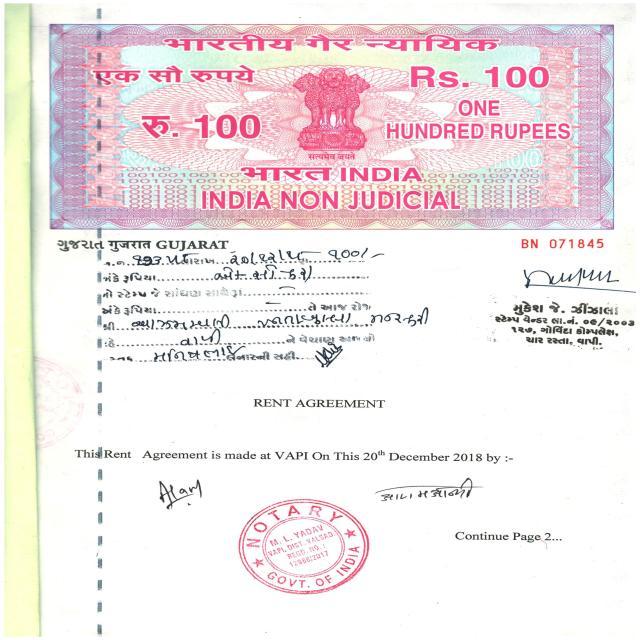 भारतीय गैर न्यायिक
एक सौ रुपये
Rs. 100
रु. 100
ONE
HUNDRED RUPEES
सत्यमेव जयते
भारत INDIA
INDIA NON JUDICIAL
ગુજરાત गुजरात GUJARAT
BN 071845
તારીખ ૧૦૦/-
અંકે રૂપિયા
નો સ્ટેમ્પ જે સાંધણ સાથેમાં
અંકે રૂપિયા તે આજ રોજ
શ્રી
વાપી ને વેચાણ
લેનારની સહી.
મુકેશ જે. ઝીંઝાલા
સ્ટેમ્પ વેન્ડર લા.નં. ૦૯/૨૦૦૩
૧૨૭, ગોવિંદા કોમ્પલેક્ષ,
ચાર રસ્તા, વાપી.
RENT AGREEMENT
This Rent Agreement is made at VAPI On This 20th December 2018 by :-
Alam
NOTARY
M. L. YADAV
VAPI, DIST. VALSAD
REGD. NO. :
12986/2017
GOVT. OF INDIA
Continue Page 2...